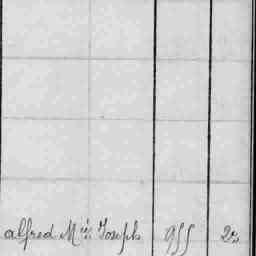 alfred Mie Joseph 955 2e